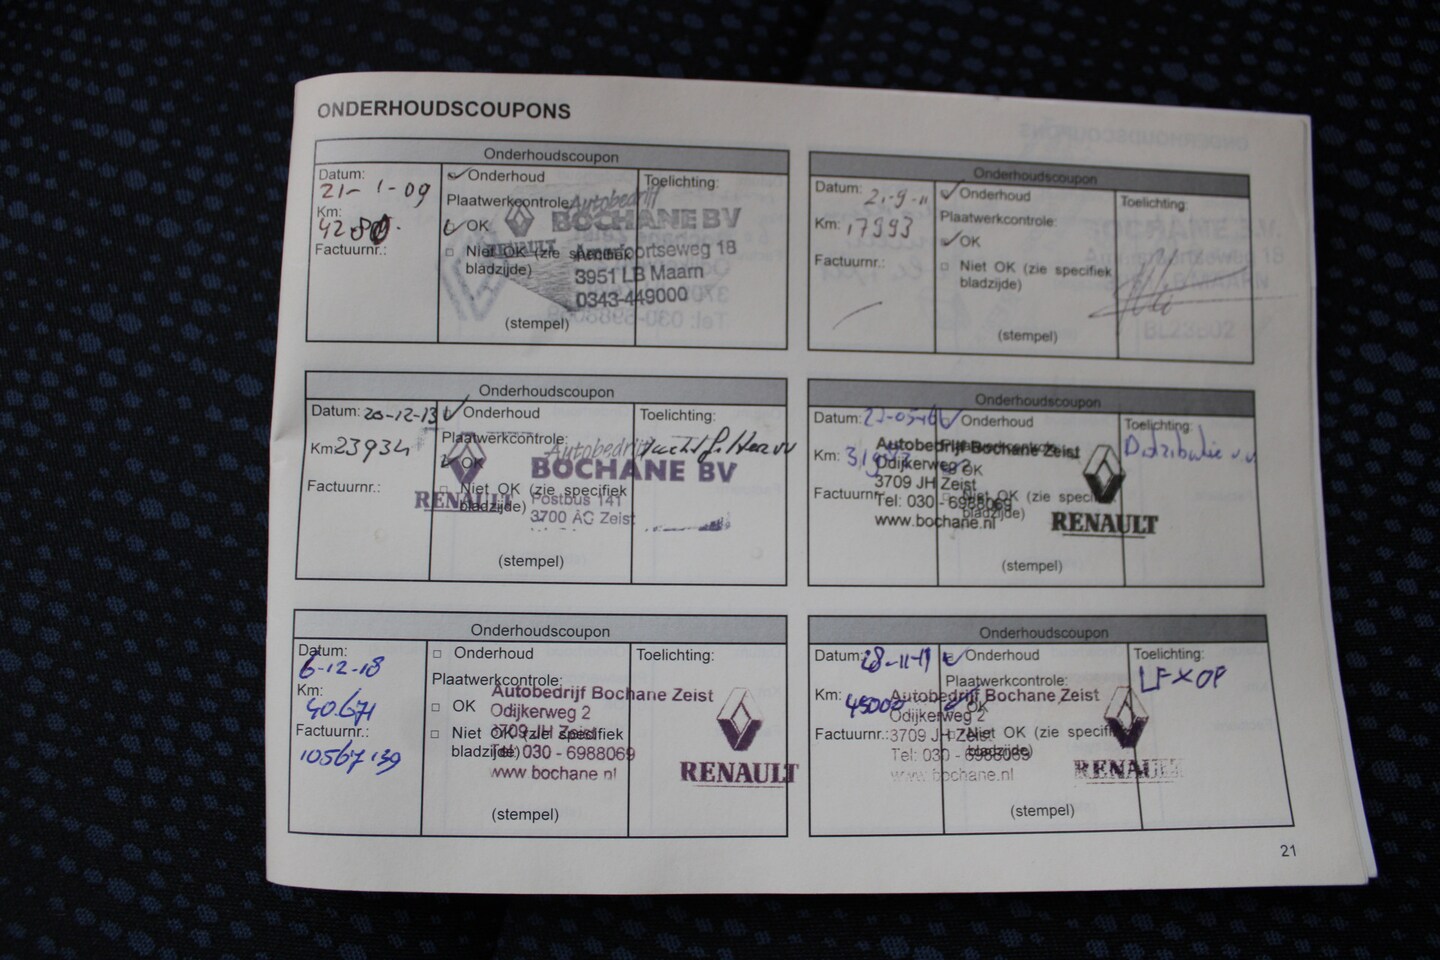 ONDERHOUDSCOUPONS
Onderhoudscoupon
Datum:
21-1-09
Km:
Factuurnr.:
Onderhoud
Plaatwerkcontrole:
OK
Niet OK (zie specifiek
bladzijde)
(stempel)
Toelichting:
Autobedrijf
BOCHANE BV
RENAULT
Amersfoortseweg 18
3951 LB Maarn
0343-449000
Onderhoudscoupon
Datum: 21-9-11
Km: 17993
Factuurnr.:
Onderhoud
Plaatwerkcontrole:
OK
Niet OK (zie specifiek
bladzijde)
(stempel)
Toelichting:
Onderhoudscoupon
Datum: 20-12-13
Km 23934
Factuurnr.:
Onderhoud
Plaatwerkcontrole:
OK
Niet OK (zie specifiek
bladzijde)
(stempel)
Toelichting:
Autobedrijf
BOCHANE BV
RENAULT
Postbus 141
3700 AC Zeist
Onderhoudscoupon
Datum:
Km:
Factuurnr.
Onderhoud
Plaatwerkcontrole:
OK
Niet OK (zie specifiek
bladzijde)
(stempel)
Toelichting:
Distributie v.v
Autobedrijf Bochane Zeist
Odijkerweg 2
3709 JH Zeist
Tel: 030 - 6988069
www.bochane.nl
RENAULT
Onderhoudscoupon
Datum:
6-12-18
Km:
40.671
Factuurnr.:
10567139
Onderhoud
Plaatwerkcontrole:
OK
Niet OK (zie specifiek
bladzijde)
(stempel)
Toelichting:
Autobedrijf Bochane Zeist
Odijkerweg 2
3709 JH Zeist
Tel: 030 - 6988069
www.bochane.nl
RENAULT
Onderhoudscoupon
Datum: 28-11-19
Km: 45000
Factuurnr.:
Onderhoud
Plaatwerkcontrole:
OK
Niet OK (zie specifiek
bladzijde)
(stempel)
Toelichting:
LF x OF
Autobedrijf Bochane Zeist
Odijkerweg 2
3709 JH Zeist
Tel: 030 - 6988069
www.bochane.nl
RENAULT
21